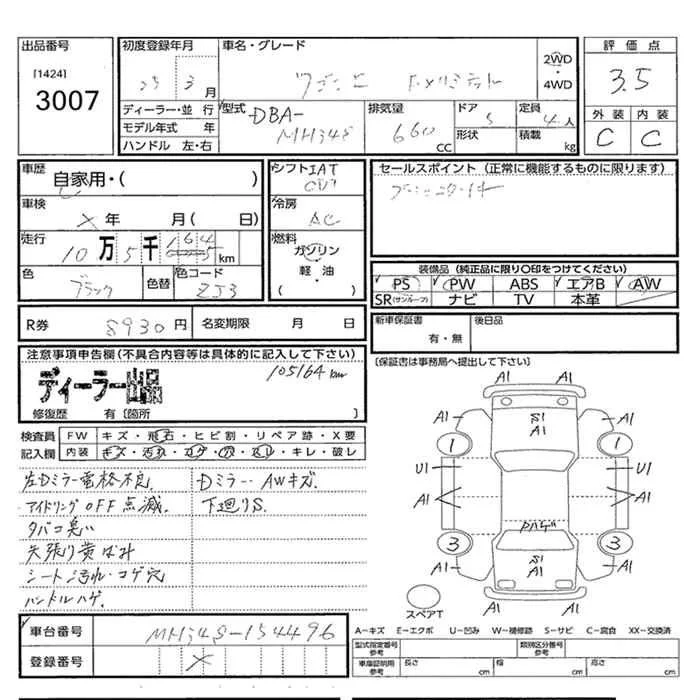 出品番号
[1424]
3007
初度登録年月
25 3月
ディーラー・並行
モデル年式 年
ハンドル 左・右
車名・グレード
ワゴンR
2WD
・
4WD
型式
DBA-
MH34S
排気量
660
CC
ドア
5
形状
定員
4人
積載
kg
評価点
3.5
外装 内装
C C
車歴
自家用・( )
車検
×年 月( 日)
走行
10万5千164km
色
ブラック
色替
色コード
ZJ3
シフト IAT
冷房
AC
燃料
ガソリン
・
軽・油
( )
セールスポイント (正常に機能するものに限ります)
装備品 (純正品に限り○印をつけてください)
PS PW ABS エアB AW
SR(サンルーフ) ナビ TV 本革
R券 8930円 名変期限 月 日
新車保証書
有・無
後日品
[保証書は事務局へ提出して下さい]
注意事項申告欄(不具合内容等は具体的に記入して下さい)
ディーラー出品
105164km
修復歴 有 [箇所
検査員
記入欄
FW キズ・飛石・ヒビ割・リペア跡・X要
内装 キズ・汚れ・コゲ・穴・スレ・キレ・破レ
左Dミラー電格不良.
アイドリングOFF点滅.
タバコ臭い
天張り黄ばみ
シート汚れ・コゲ穴
ハンドルハゲ.
Dミラー. AWキズ.
下廻りS.
A1 A1
A1 S1 A1 A1
1 1
U1 U1
A1 A1
3 3
S1
A1 A1 A1
A1 A1
スペアT
A-キズ E-エクボ U-凹み W-補修跡 S-サビ C-腐食 XX-交換済
車台番号
MH34S-154496
登録番号
×
型式指定番号
参考
類別区分番号
参考
車庫証明用
参考
長さ cm 幅 cm 高さ cm